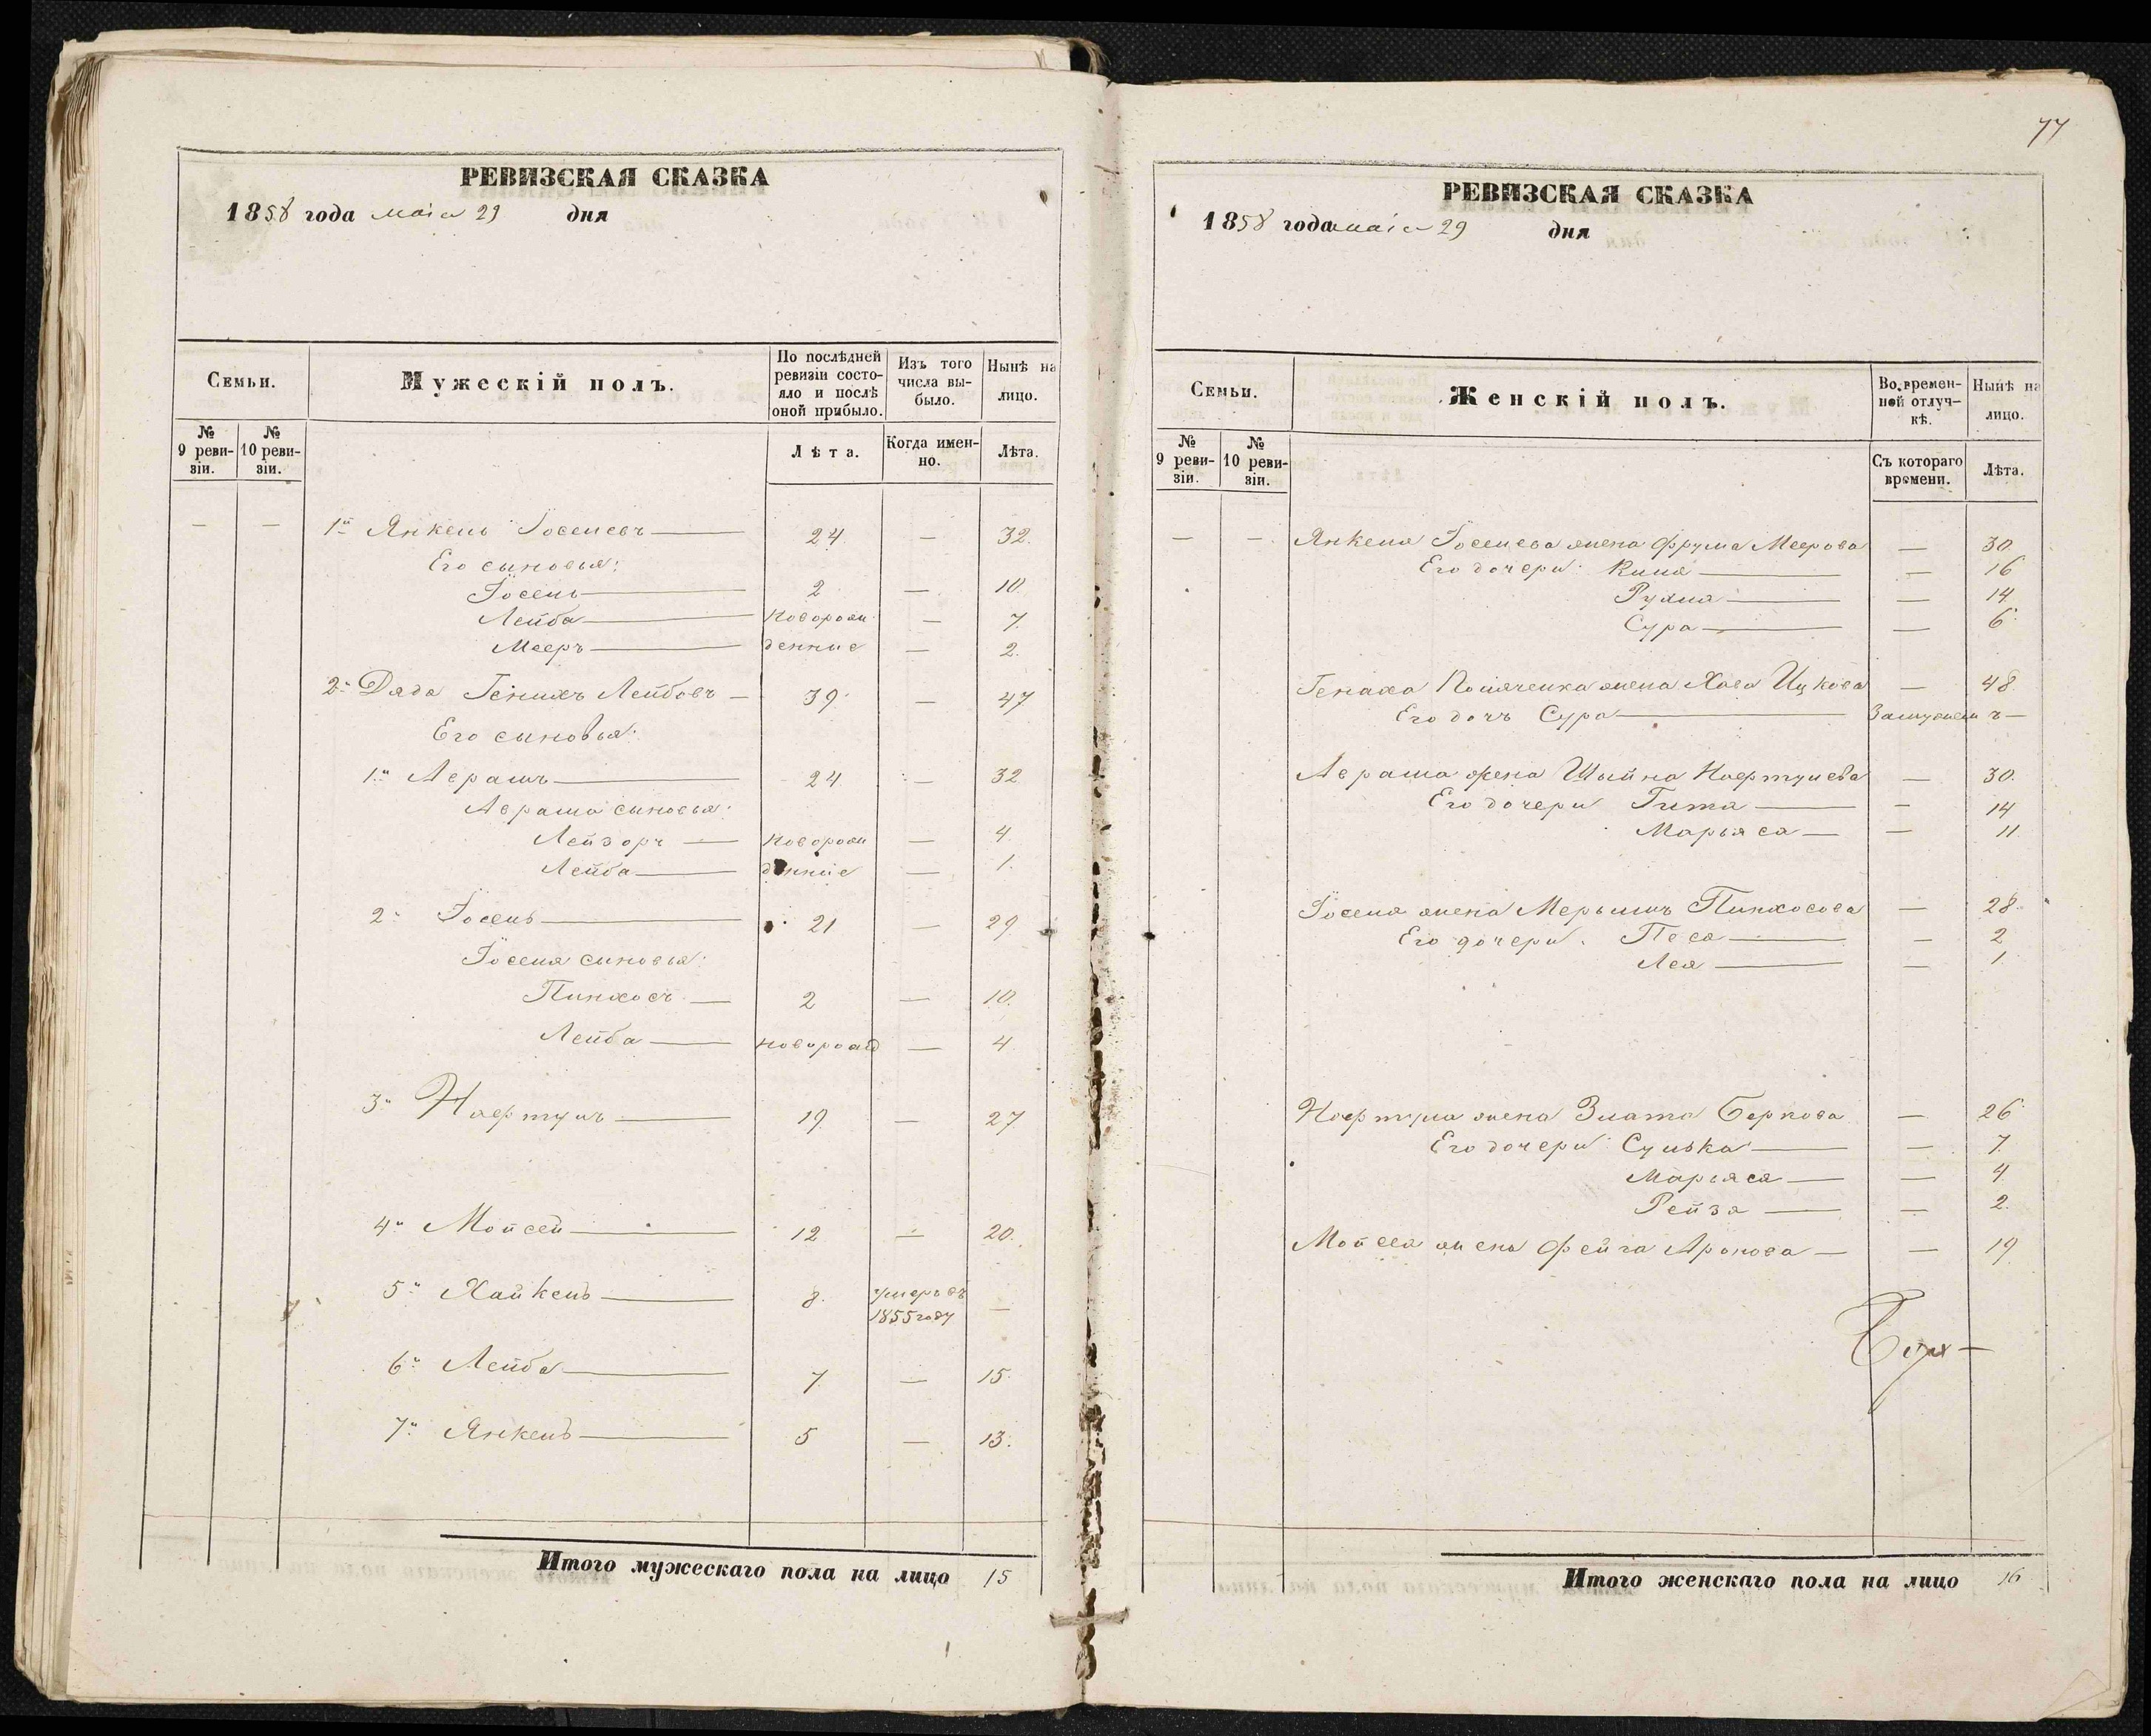 РЕВИЗСКАЯ СКАЗКА
1858 года маіа 29 дня
Семьи.
Мужескій полъ.
По послѣдней ревизіи состояло и послѣ оной прибыло.
Изъ того числа выбыло.
Нынѣ на лицо.
№ 9 ревизіи.
№ 10 ревизіи.
Лѣта.
Когда именно.
Лѣта.
— — 1й Янкель Іоселевъ — 24. — 32.
Его сыновья:
Іосель — 2 — 10.
Лейба — новорож — 7.
Мееръ — денные — 2.
2й Дядя Генихъ Лейбовъ — 39. — 47
Его сыновья:
1й Аврамъ — 24. — 32
Аврама сыновья:
Лейзоръ — новорож — 4.
Лейба — денніе — 1.
2й Іосель — 21 — 29
Іоселя сыновья:
Пинхосъ — 2 — 10.
Лейба — новорожд — 4.
3й Нафтуль — 19. — 27
4й Мойсей — 12 — 20.
5й Хайкель — 8. умеръ въ —
1855 году
6й Лейба — 7. — 15.
7й Янкель — 5 — 13.
Итого мужескаго пола на лицо 15
77
РЕВИЗСКАЯ СКАЗКА
1858 года маіа 29 дня
Семьи.
Женскій полъ.
Во временной отлучкѣ.
Нынѣ на лицо.
№ 9 ревизіи.
№ 10 ревизіи.
Съ котораго времени.
Лѣта.
— — Янкеля Іоселева жена Фрума Меерова — 30.
Его дочери: — 16
— 14
Сура — 6.
Генаха жена Хава Ицкова — 48.
Его дочь Сура — Замужемъ —
Аврама жена Шейна Нафтулева — 30.
Его дочери Гита — 14
Марьяса — 11.
Іоселя жена Мерьимъ Пинхосова — 28.
Его дочери: Песа — 2
Лея — 1.
Нафтула жена Злата Беркова — 26
Его дочери: Сулька — 7.
Марьяса — 4
Рейза — 2.
Мойсея жена Фейга Аронова — 19.
Итого женскаго пола на лицо 16